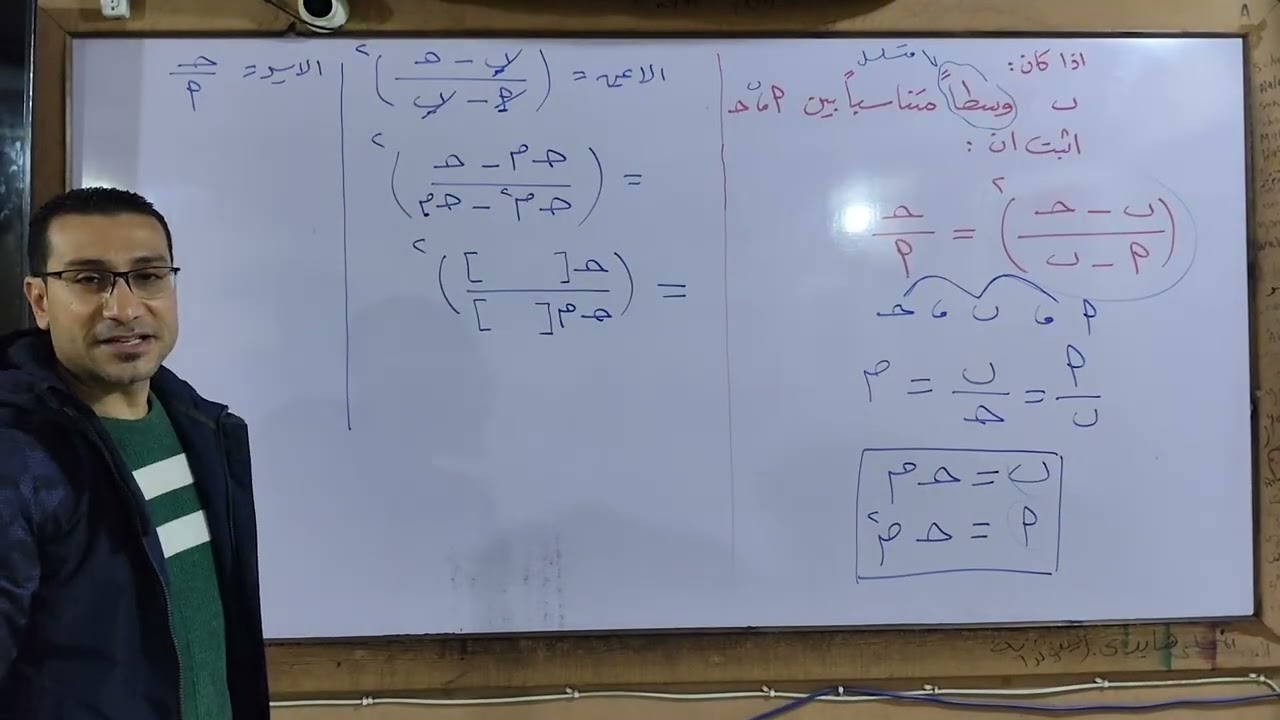 اذا كان:
متسلسل
ب وسطاً متناسباً بين أ ، حـ
اثبت ان :
(ب - حـ / أ - ب)² = حـ / أ
أ ، ب ، حـ
أ / ب = ب / حـ = م
ب = حـ م
أ = حـ م²
الايمن = (ب - حـ / أ - ب)²
= (حـ م - حـ / حـ م² - حـ م)²
= (حـ [ ] / حـ م [ ])²
الايسر = حـ / أ